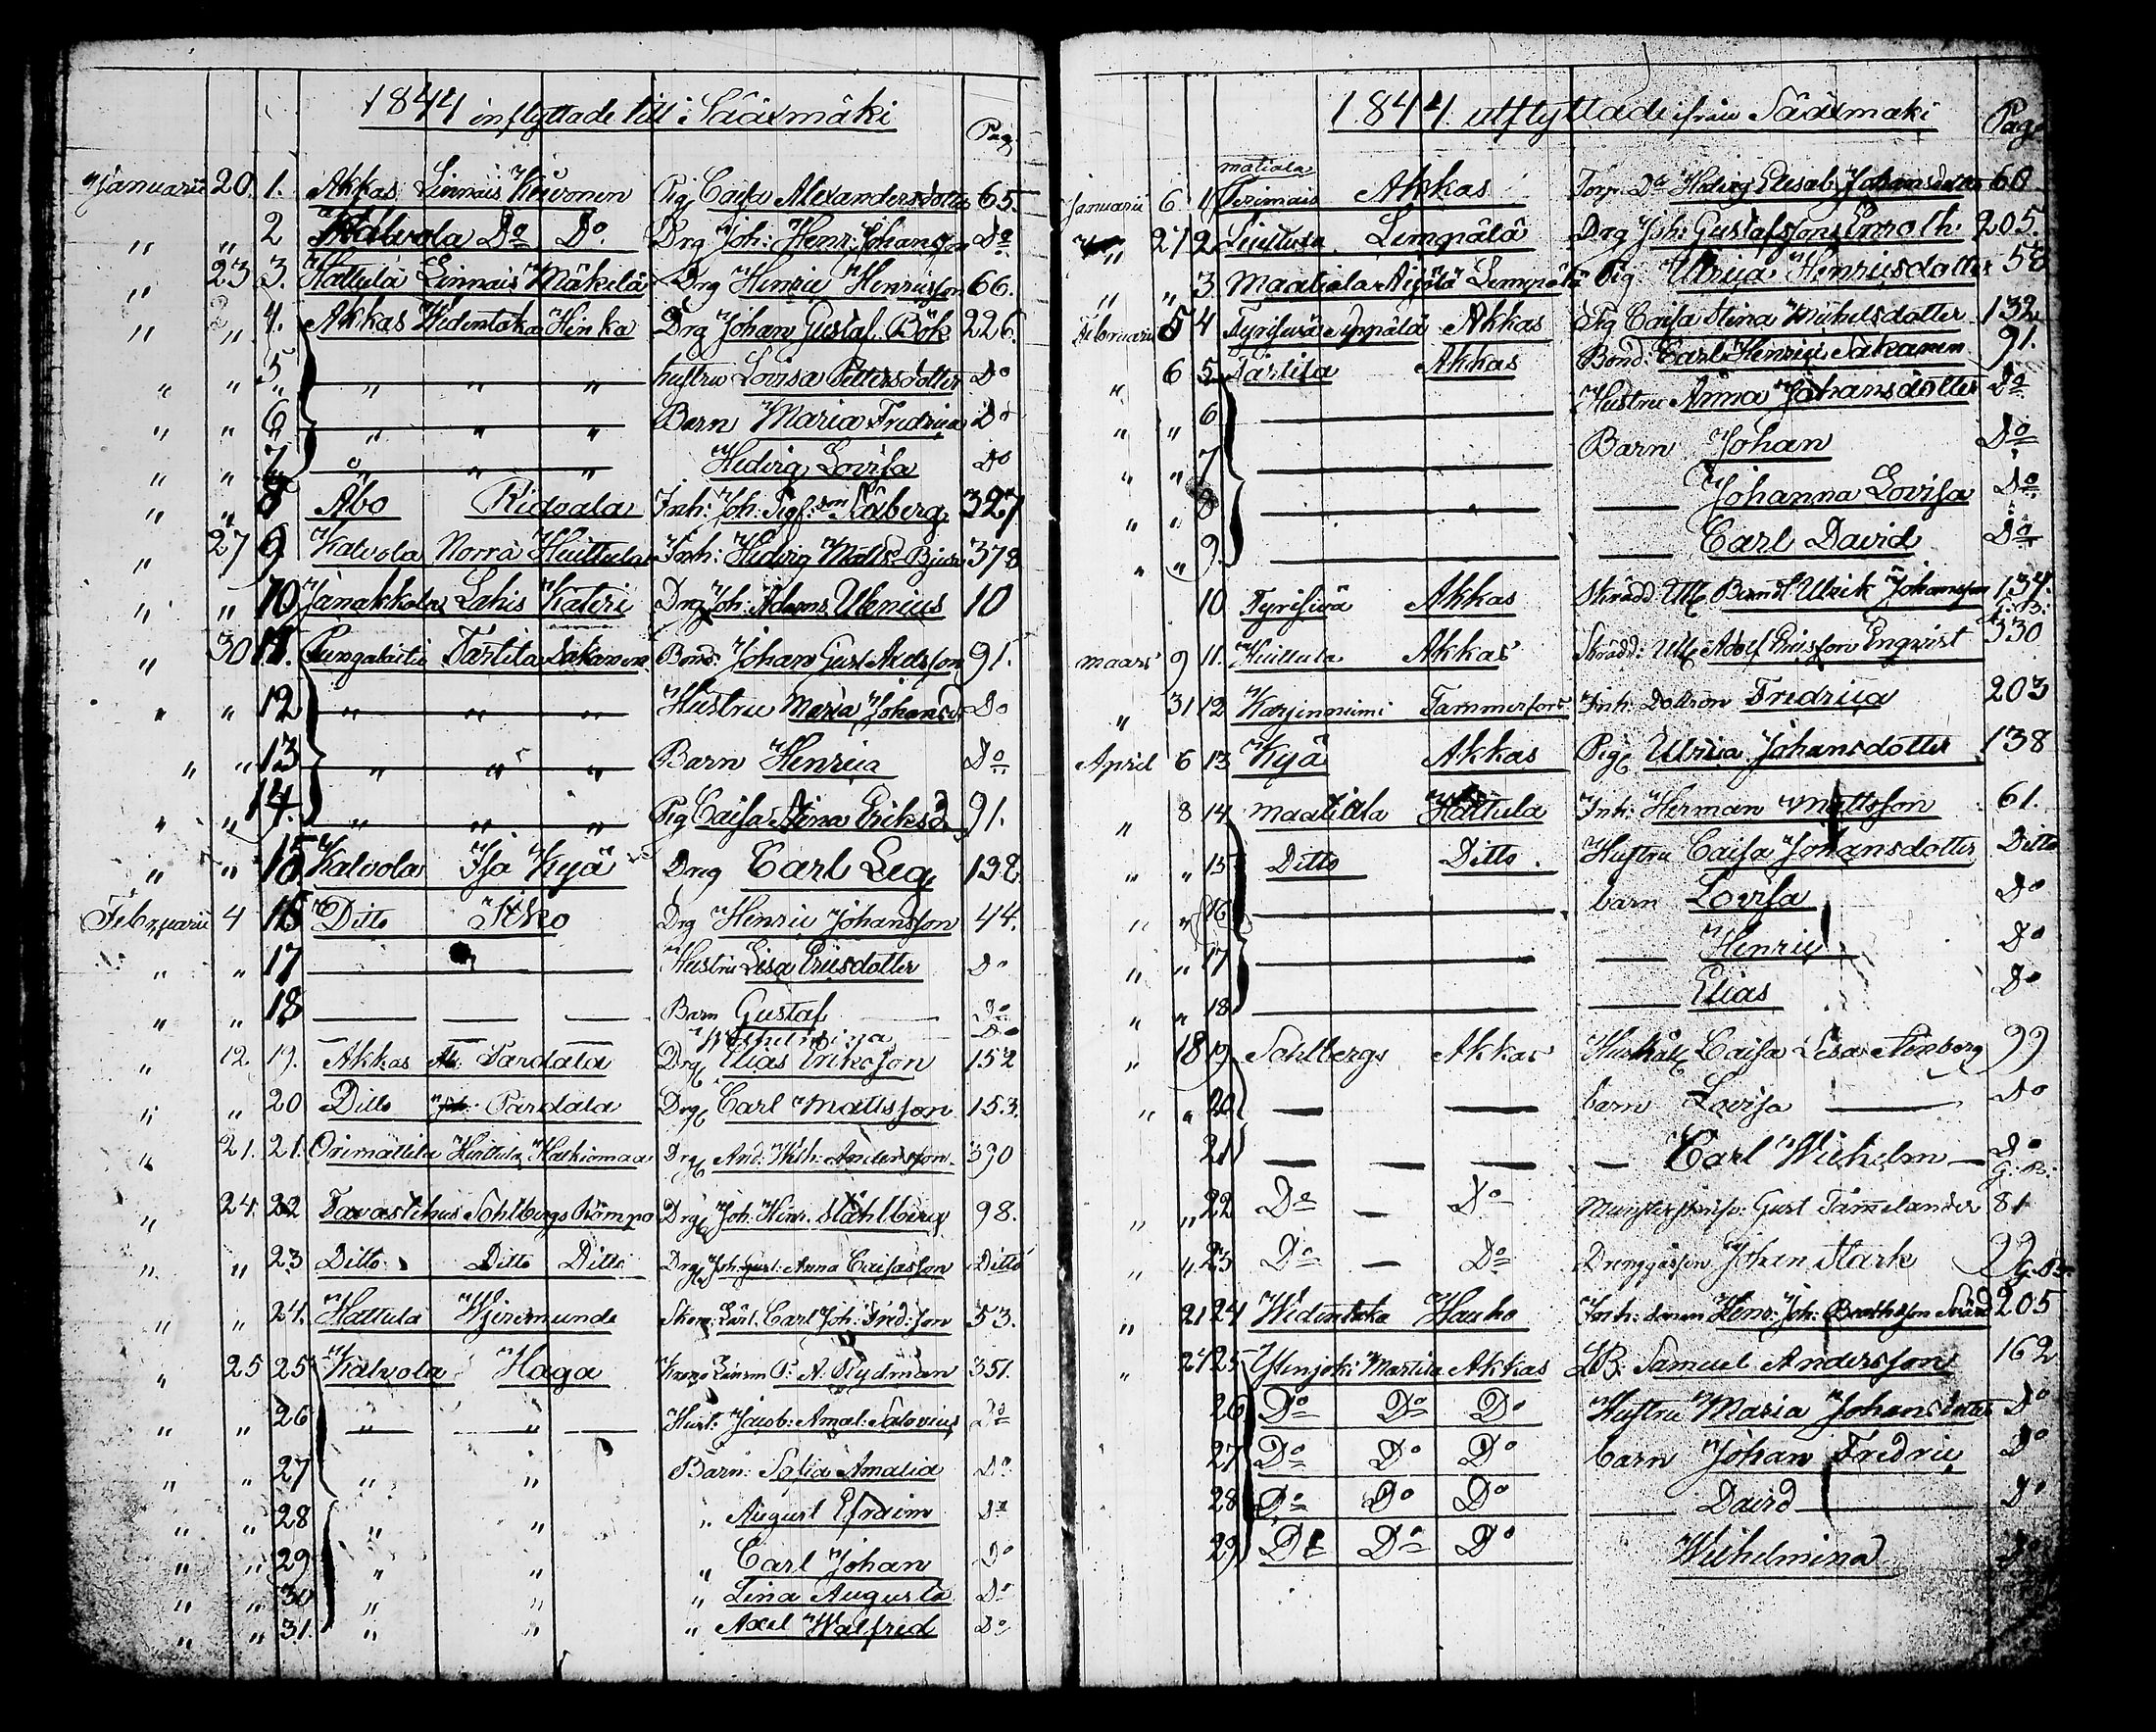 1844 inflyttade till Sääxmäki
Pag
Januarii 20. 1. Akkas Linnais Keuvonen Pig Caisa Alexandersdotter 65.
" " 2 Kalvola Do Do. Drg Joh: Henr: Johansson Do
" 23 3. Hattula Linnais Mäkelä Drg Henric Henricsson 66.
" " 4. Akkas Hedentaka Hinka Drg Johan Gustaf Bök 226.
" " 5 " " " hustru Lovisa Pettersdotter Do
" " 6 " " " Barn Maria Fredrica Do
" " 7 " " " Hedvig Lovisa Do
" " 8 Åbo Ridvala Inh: Joh: Sigf:son Råberg 327
" 27 9 Kalvola Norra Huittula Inh: Hedvig Matts 378
" " 10 Janakkala Lahis Kateri Drg Joh: Adams Ulenius 10
" 30 11. Pungalaitio Tarttila Sakanen Bond: Johan Gust Axelsson 91.
" " 12 " " " Hustru Maria Johansd Do
" " 13 " " " Barn Henrica Do
" " 14. " " " Pig Caisa Stina Eriksd 91.
" " 15 Kalvola Isa Kyä Drg Carl Leg 198
Februarii 4 16 Ditto Jtko Drg Henric Johansson 44.
" " 17 Hustru Lisa Ericsdotter Do
" " 18 Barn Gustaf Do
Wilhelmina Do
" 12 19. Akkas Pardala Drg Elias Eriksson 152
" " 20 Ditto Pardala Drg Carl Mattsson 153.
" 21. 21. Orimattila Huittula Haskiomaa Drg And: Wilh: Andersson 390
" 24. 22 Tavastehus Sahlbergs Kämpo Drg Joh: Henr: Ståhlberg 98.
" " 23 Ditto Ditto Ditto Drg Joh: Gust: Anna Caisasson Ditto
" " 24. Hattula Wjiremunde Skom: Lärl. Carl Joh: Fred:son 53.
" 25 25 Kalvola Haga Krono Länsm P: A. Rydman 351.
" " 26 " " Hust: Jacob: Amal: Salovius Do
" " 27 " " Barn: Sofia Amalia Do
" " 28 " " " August Efraim Do
" " 29 " " " Carl Johan Do
" " 30 " " " Lina Augusta Do
" " 31. " " " Axel Walfred Do
1844 utflyttade ifrån Sääxmäki
Pag
matiala
Januarii 6 1 Terimais Akkas Torp: Dr Hedvig Elisab: Johansdotter 60
" 21 2 Huittula Lempälä Drg Joh: Gustafsson Enroth 205.
" " 3 Maatiala Lempälä Pig Ulrica Henricsdotter 58
Februari 5 4 Tyrisevä Akkas Pig Caisa Stina Michelsdotter 132
" 6 5 Tarttila Akkas Bond: Carl Henric Sakanen 91.
" " 6 Hustru Anna Johansdotter Do
" " 7 Barn Johan Do
" " 8 Johanna Lovisa Do
" " 9. Carl David Do
10 Tyrisevä Akkas Skrädd: Band: Ulrik Johansson 134.
G: B:
mars 9 11. Huittula Akkas Skrädd: Adolf Ericsson Engvist 330
" 31 12 Karjenniemi Tammerfors Inh: Dottron Fredrica 203
April 6 13 Kyä Akkas Pig Ulrica Johansdotter 138
" 8 14 Maatiala Hattula Inh: Herman Mattsson 61.
" " 15 Ditto Ditto. Hustru Caisa Johansdotter Ditto
" " 16 barn Lovisa Do
" " 17 Henric Do
" " 18 Elias Do
" 18 19 Sahlbergs Akkas Hushåll Caisa Lisa Stenberg 99
" " 20 barn Lovisa Do
21 Carl Wilhelm Do
G: B:
" " 22 Do Do Gust Tammelander 81
" " 23 Do Do Drenggåssen Johan Stark 99
" 21 24 Widentaka Hauho Inh: sonen Henr: Joh: Svärd 205
" 24 25 Ylenjoki Martila Akkas LB: Samuel Andersson 162
26 Do Do Do Hustru Maria Johansdotter Do
27 Do Do Do barn Johan Fredric Do
28 Do Do Do David Do
29 Do Do Do Wilhelmina Do